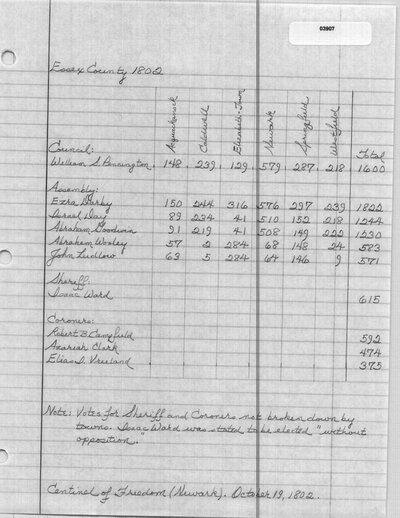 03907
Essex County 1802
Acquackanock Caldwell Elizabeth-Town Newark Springfield Westfield
Council: Total
William S. Pennington 148 239 129 579 287 218 1600
Assembly:
Ezra Darby 150 244 316 576 297 239 1822
Israel Day 89 234 41 510 152 218 1244
Abraham Goodwin 91 219 41 508 149 222 1230
Abraham Wooley 57 2 284 68 148 24 583
John Ludlow 63 5 284 64 146 9 571
Sheriff:
Isaac Ward 615
Coroners:
Robert B. Campfield 592
Azariah Clark 474
Elias D. Vreeland 375
Note: Votes for Sheriff and Coroners not broken down by
towns. Isaac Ward was stated to be elected "without
opposition."
Centinel of Freedom (Newark). October 19, 1802.